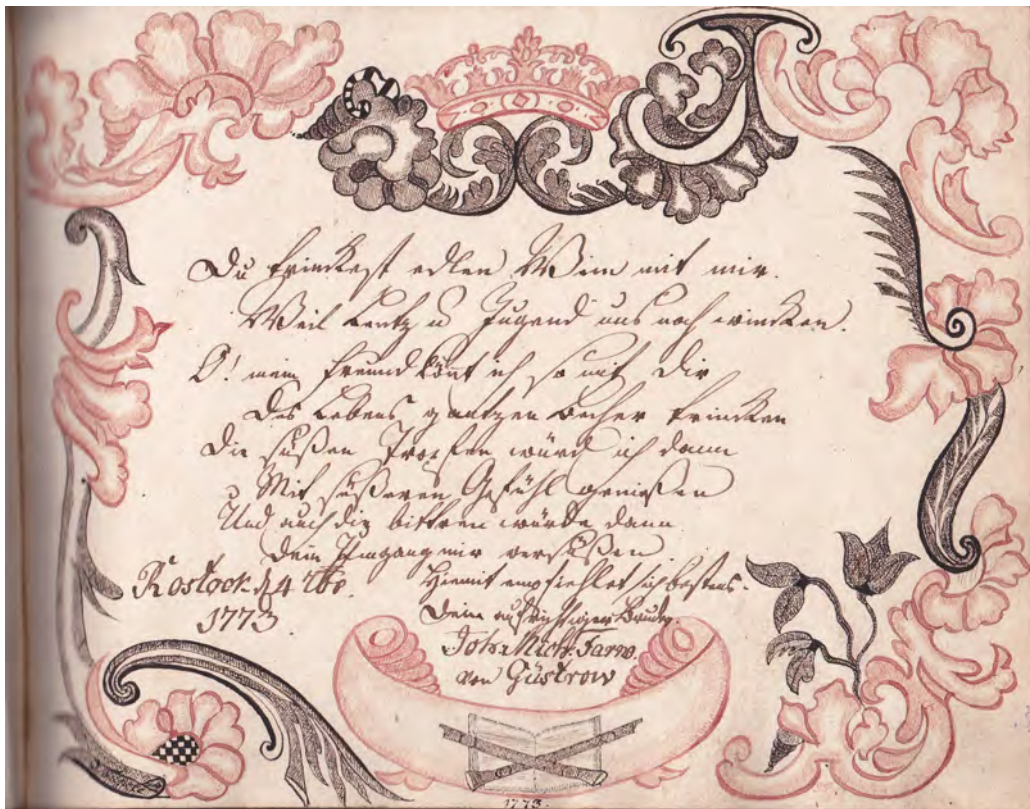 Du trinckest edlen Wein mit mir.
Weil Lentz u Jugend uns noch wincken.
O! mein Freund könt ich so mit dir
Des Lebens gantzen Becher trincken
Die süßen Tropfen würd ich dann
Mit süßeren Gefühl genießen
Und auch die bittren würde dann
Dein Umgang mir versüßen
Rostock d 4
1773.
Hiemit empfiehlet sich bestens.
Dein aufrichtiger Bruder.
Joh: Mich: Tarn.
von Güstrow
1773.